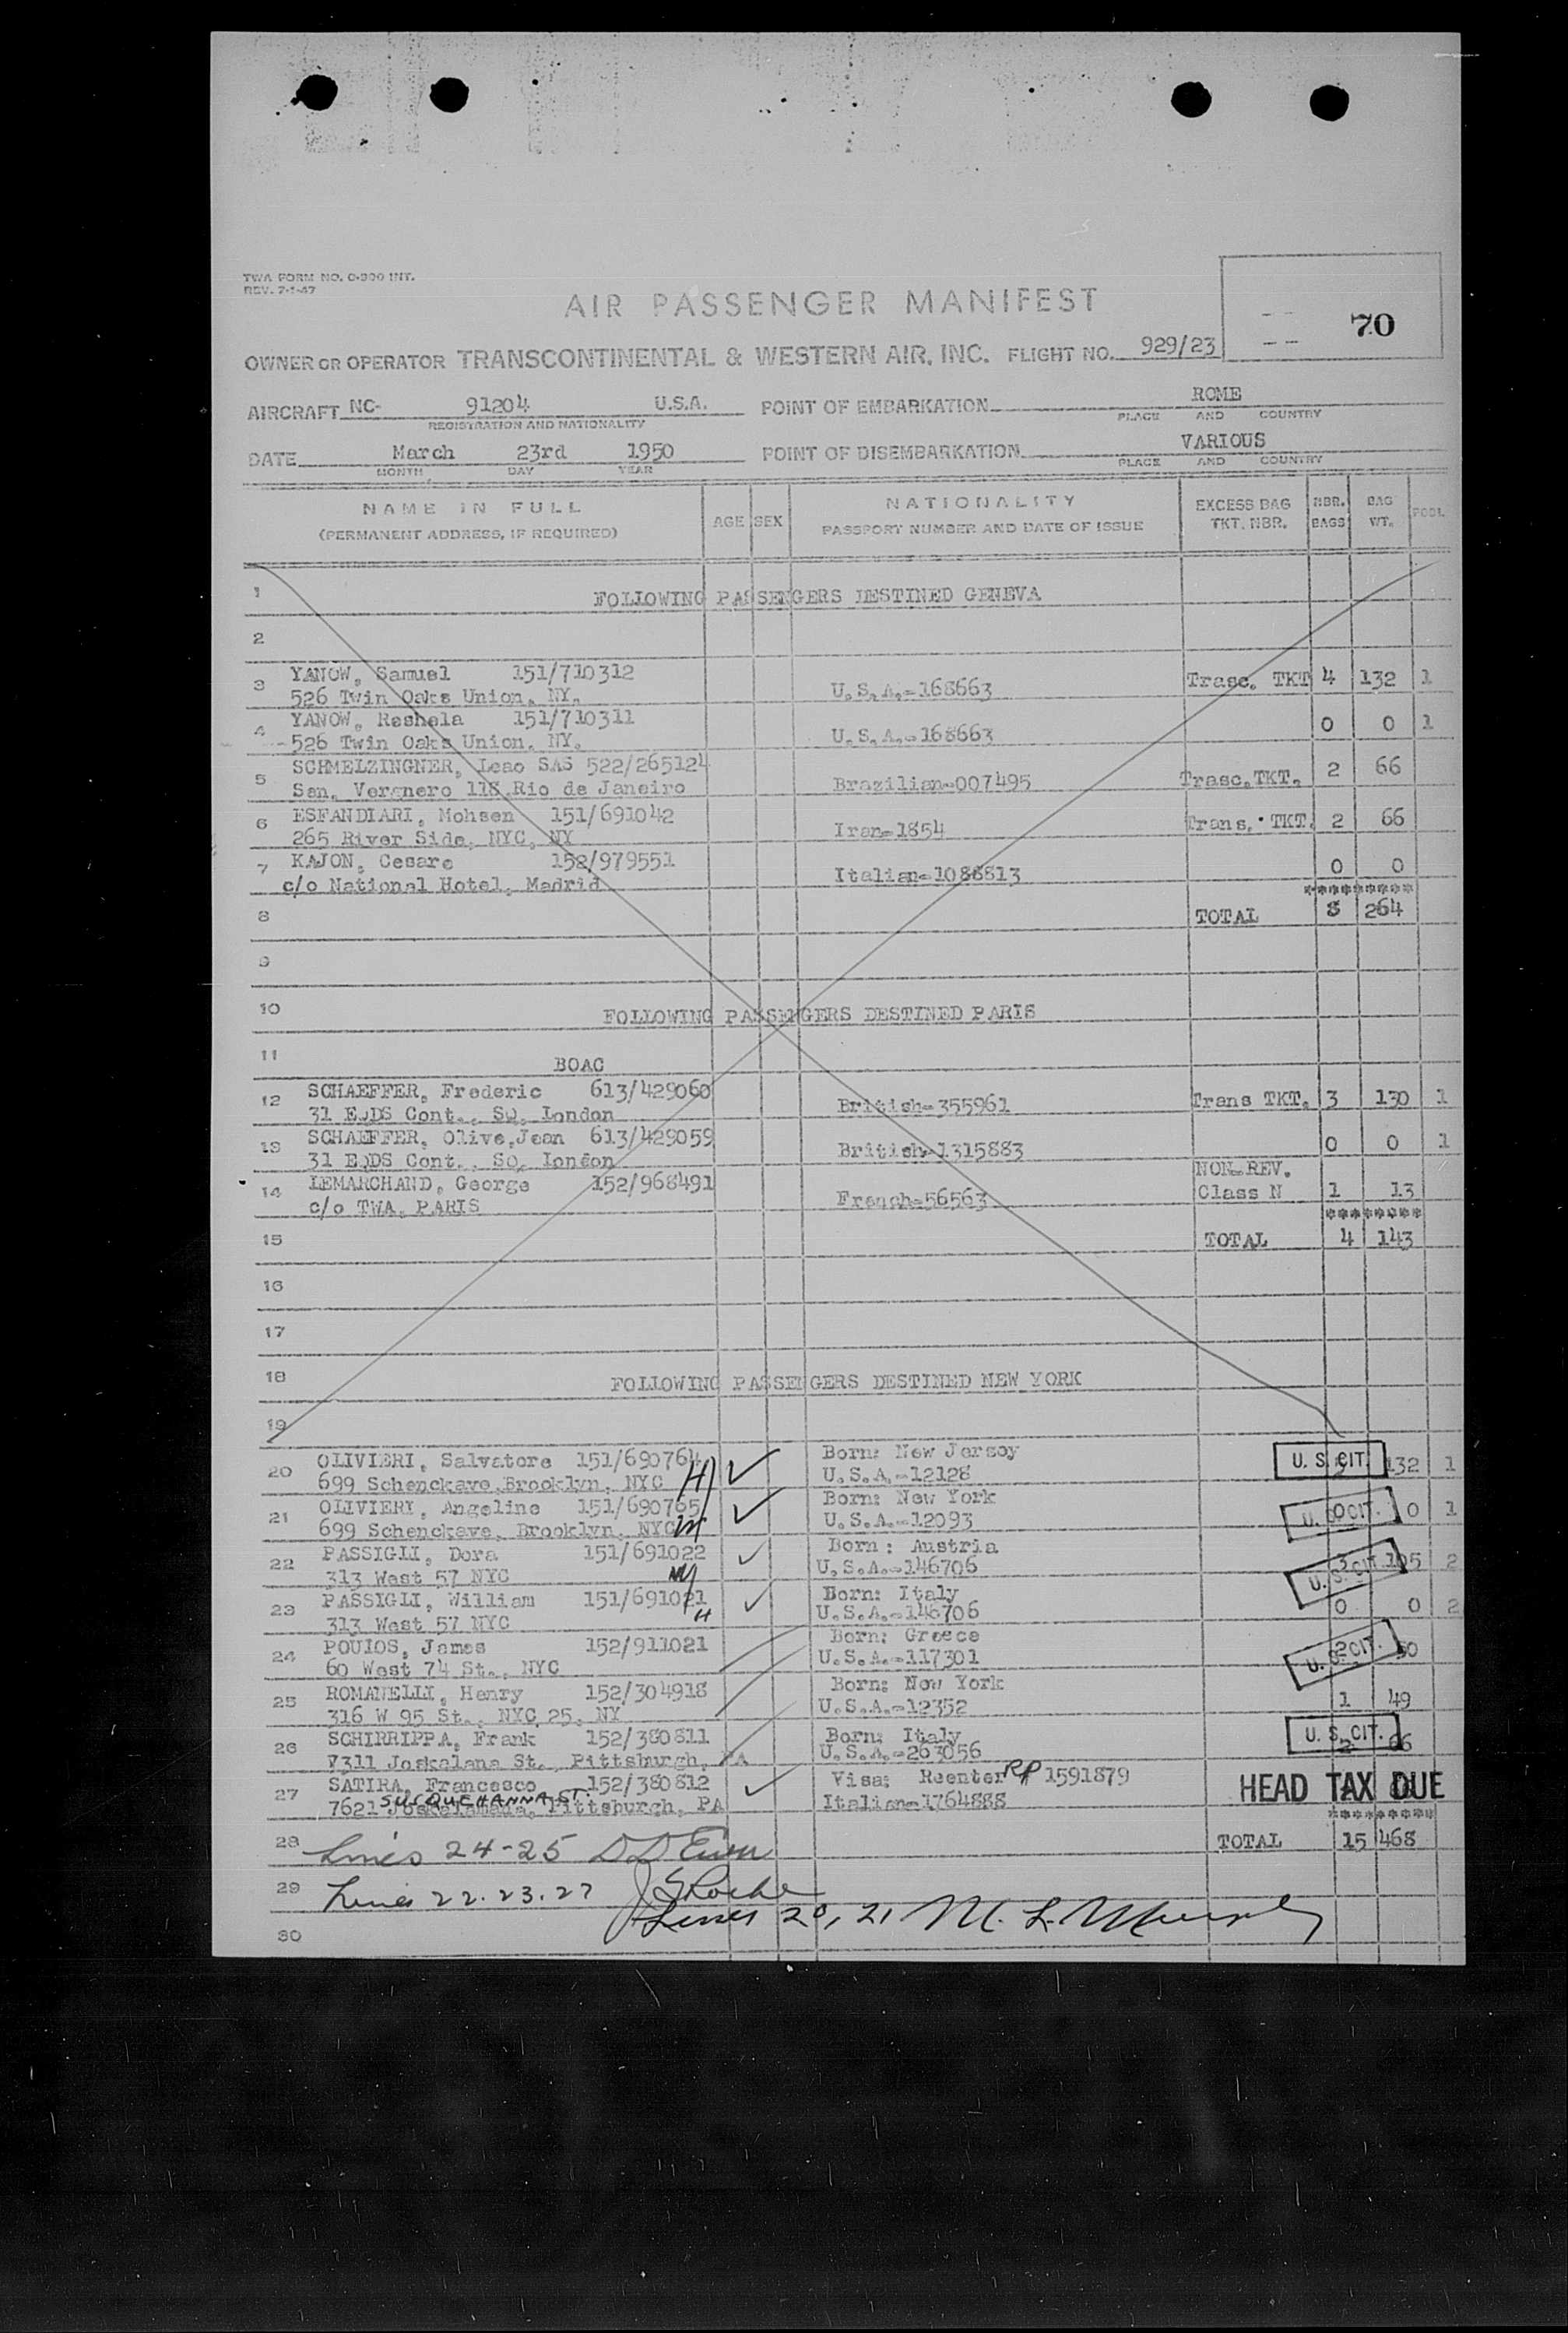 TWA FORM NO. 0-900 INT.
REV. 7-1-47
AIR PASSENGER MANIFEST
70
OWNER OR OPERATOR TRANSCONTINENTAL & WESTERN AIR, INC. FLIGHT NO. 929/23
AIRCRAFT NC- 91204 U.S.A. POINT OF EMBARKATION ROME
REGISTRATION AND NATIONALITY PLACE AND COUNTRY
DATE March 23rd 1950 POINT OF DISEMBARKATION VARIOUS
MONTH DAY YEAR PLACE AND COUNTRY
NAME IN FULL AGE SEX NATIONALITY EXCESS BAG NBR. BAG POOL
(PERMANENT ADDRESS, IF REQUIRED) PASSPORT NUMBER AND DATE OF ISSUE TKT. NBR. BAGS WT.
1 FOLLOWING PASSENGERS DESTINED GENEVA
2
3 YANOW, Samuel 151/710312 U.S.A.-168663 Trasc. TKT 4 132 1
526 Twin Oaks Union, NY.
4 YANOW, Reshela 151/710311 U.S.A.-168663 0 0 1
526 Twin Oaks Union, NY.
5 SCHMELZINGNER, Leao SAS 522/265124 Brazilian-007495 Trasc.TKT. 2 66
San. Vergnero 118 Rio de Janeiro
6 ESFANDIARI, Mohsen 151/691042 Iran-1854 Trans. TKT. 2 66
265 River Side, NYC, NY
7 KAJON, Cesare 152/979551 Italian-1086813 0 0
c/o National Hotel, Madrid
**********
8 TOTAL 8 264
9
10 FOLLOWING PASSENGERS DESTINED PARIS
11 BOAC
12 SCHAEFFER, Frederic 613/429060 British-355961 Trans TKT. 3 130 1
31 EQDS Cont., SQ. London
13 SCHAEFFER, Olive,Jean 613/429059 British-1315883 0 0 1
31 EQDS Cont., SQ. London
NON-REV.
14 LEMARCHAND, George 152/968491 French-56563 Class N 1 13
c/o TWA, PARIS
*********
15 TOTAL 4 143
16
17
18 FOLLOWING PASSENGERS DESTINED NEW YORK
19
20 OLIVIERI, Salvatore 151/690764 H Born: New Jersey U. S. CIT. 132 1
699 Schenckave,Brooklyn, NYC U.S.A.-12128
21 OLIVIERI, Angeline 151/690765 Born: New York U. S. CIT. 0 0 1
699 Schenckave, Brooklyn, NYC U.S.A.-12093
22 PASSIGLI, Dora 151/691022 Born: Austria U. S. CIT. 105 2
313 West 57 NYC U.S.A.-146706
23 PASSIGLI, William 151/691021 H Born: Italy 0 0 2
313 West 57 NYC U.S.A.-146706
24 POULOS, James 152/911021 Born: Greece U. S. CIT. 2
60 West 74 St., NYC U.S.A.-117301
25 ROMANELLI, Henry 152/304918 Born: New York 1 49
316 W 95 St., NYC 25, NY U.S.A.-12352
26 SCHIRRIPPA, Frank 152/380811 Born: Italy U. S. CIT. 2 66
7311 Joskelana St., Pittsburgh, PA U.S.A.-263056
27 SATIRA, Francesco 152/380812 Visa: Reenter RP 1591879 HEAD TAX DUE
SUSQUEHANNA ST.
7621 Pittsburgh, PA Italian-1764888
*********
28 Lines 24-25 TOTAL 15 468
29 Lines 22. 23. 27 J S Roche
30 Lines 20, 21 M. L. Murphy